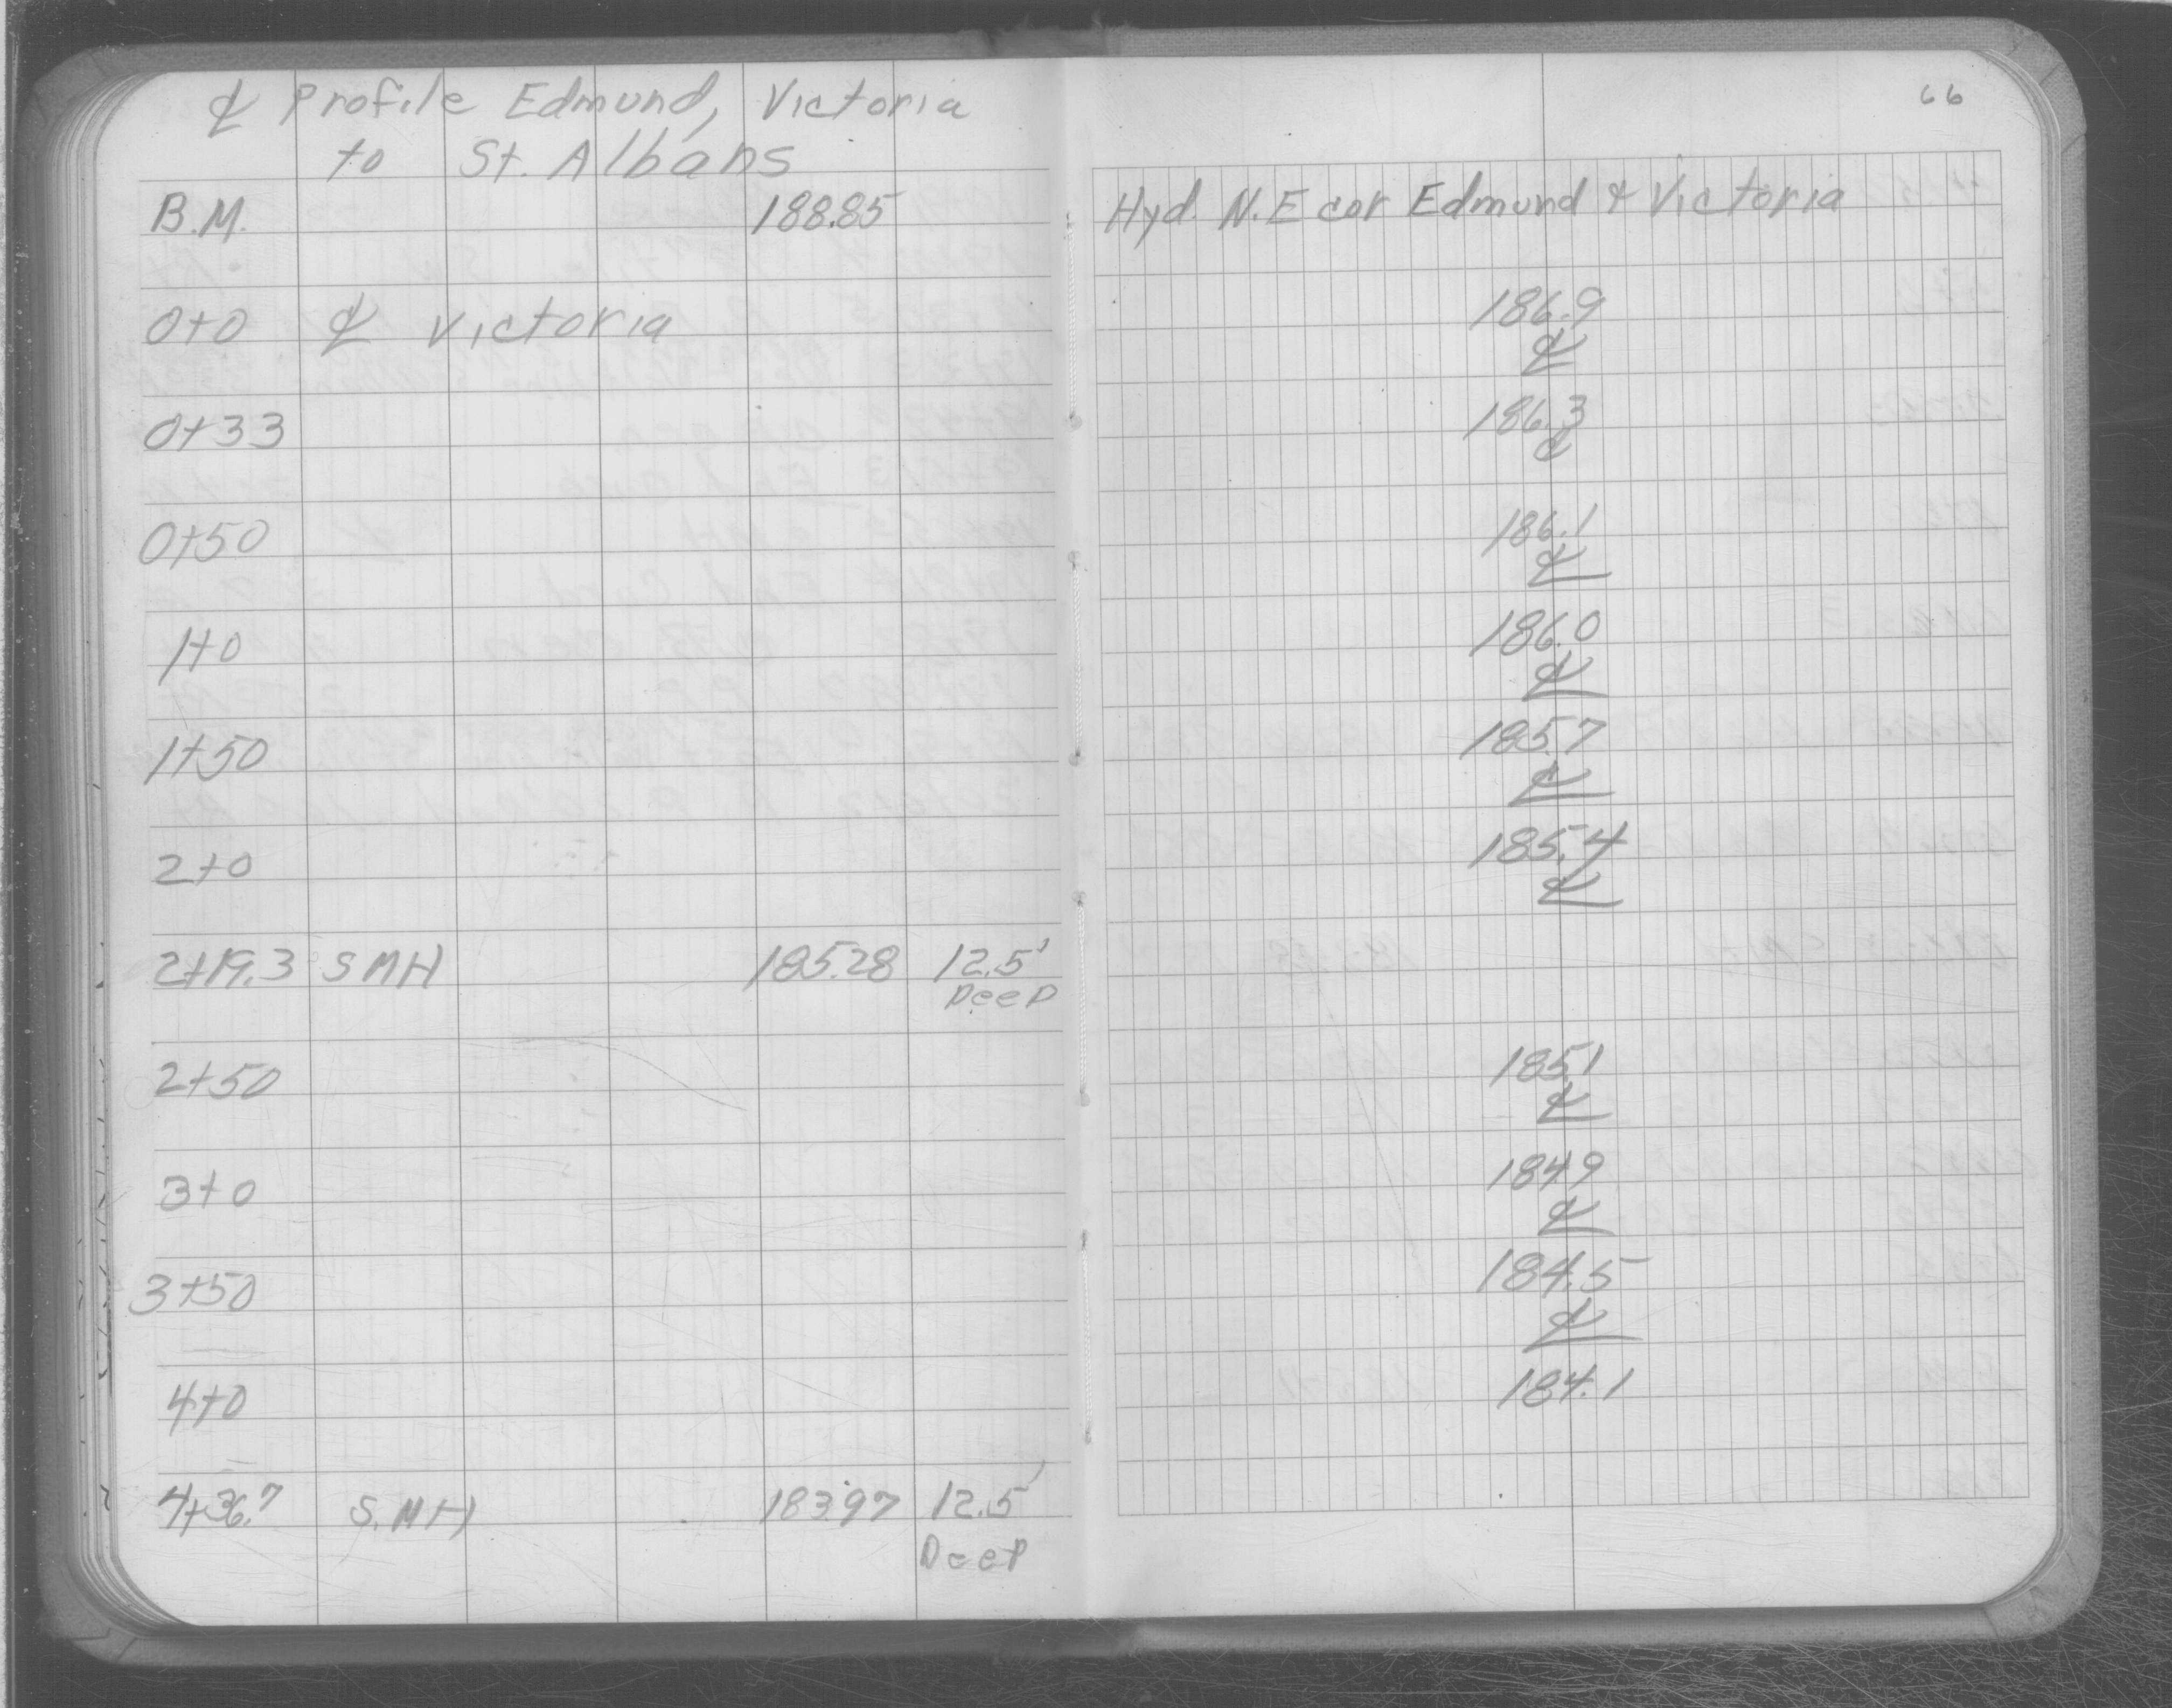 ℄ Profile Edmund, Victoria
to St. Albans
66
B.M. 188.85 Hyd. N.E cor Edmund & Victoria
0+0 ℄ Victoria 186.9
℄
0+33 186.3
℄
0+50 186.1
℄
1+0 186.0
℄
1+50 185.7
℄
2+0 185.4
℄
2+19.3 SMH 185.28 12.5'
Deep
2+50 185.1
℄
3+0 184.9
℄
3+50 184.5
℄
4+0 184.1
4+36.7 S.MH 183.97 12.5'
Deep